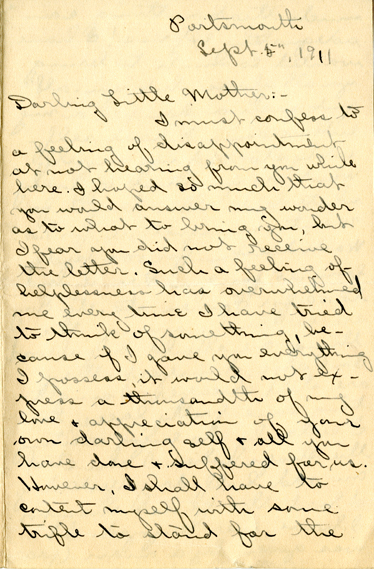 Portsmouth
Sept. 5th, 1911
Darling Little Mother:-
I must confess to
a feeling of disappointment
at not hearing from you while
here. I hoped so much that
you would answer my wonder
as to what to bring you, but
I fear you did not receive
the letter. Such a feeling of
helplessness has overwhelmed
me every time I have tried
to think of something, be-
cause if I gave you everything
I possess, it would not ex-
press a thousandth of my
love & appreciation of your
own darling self & all you
have done & suffered for us.
However, I shall have to
content myself with some
trifle to stand for the